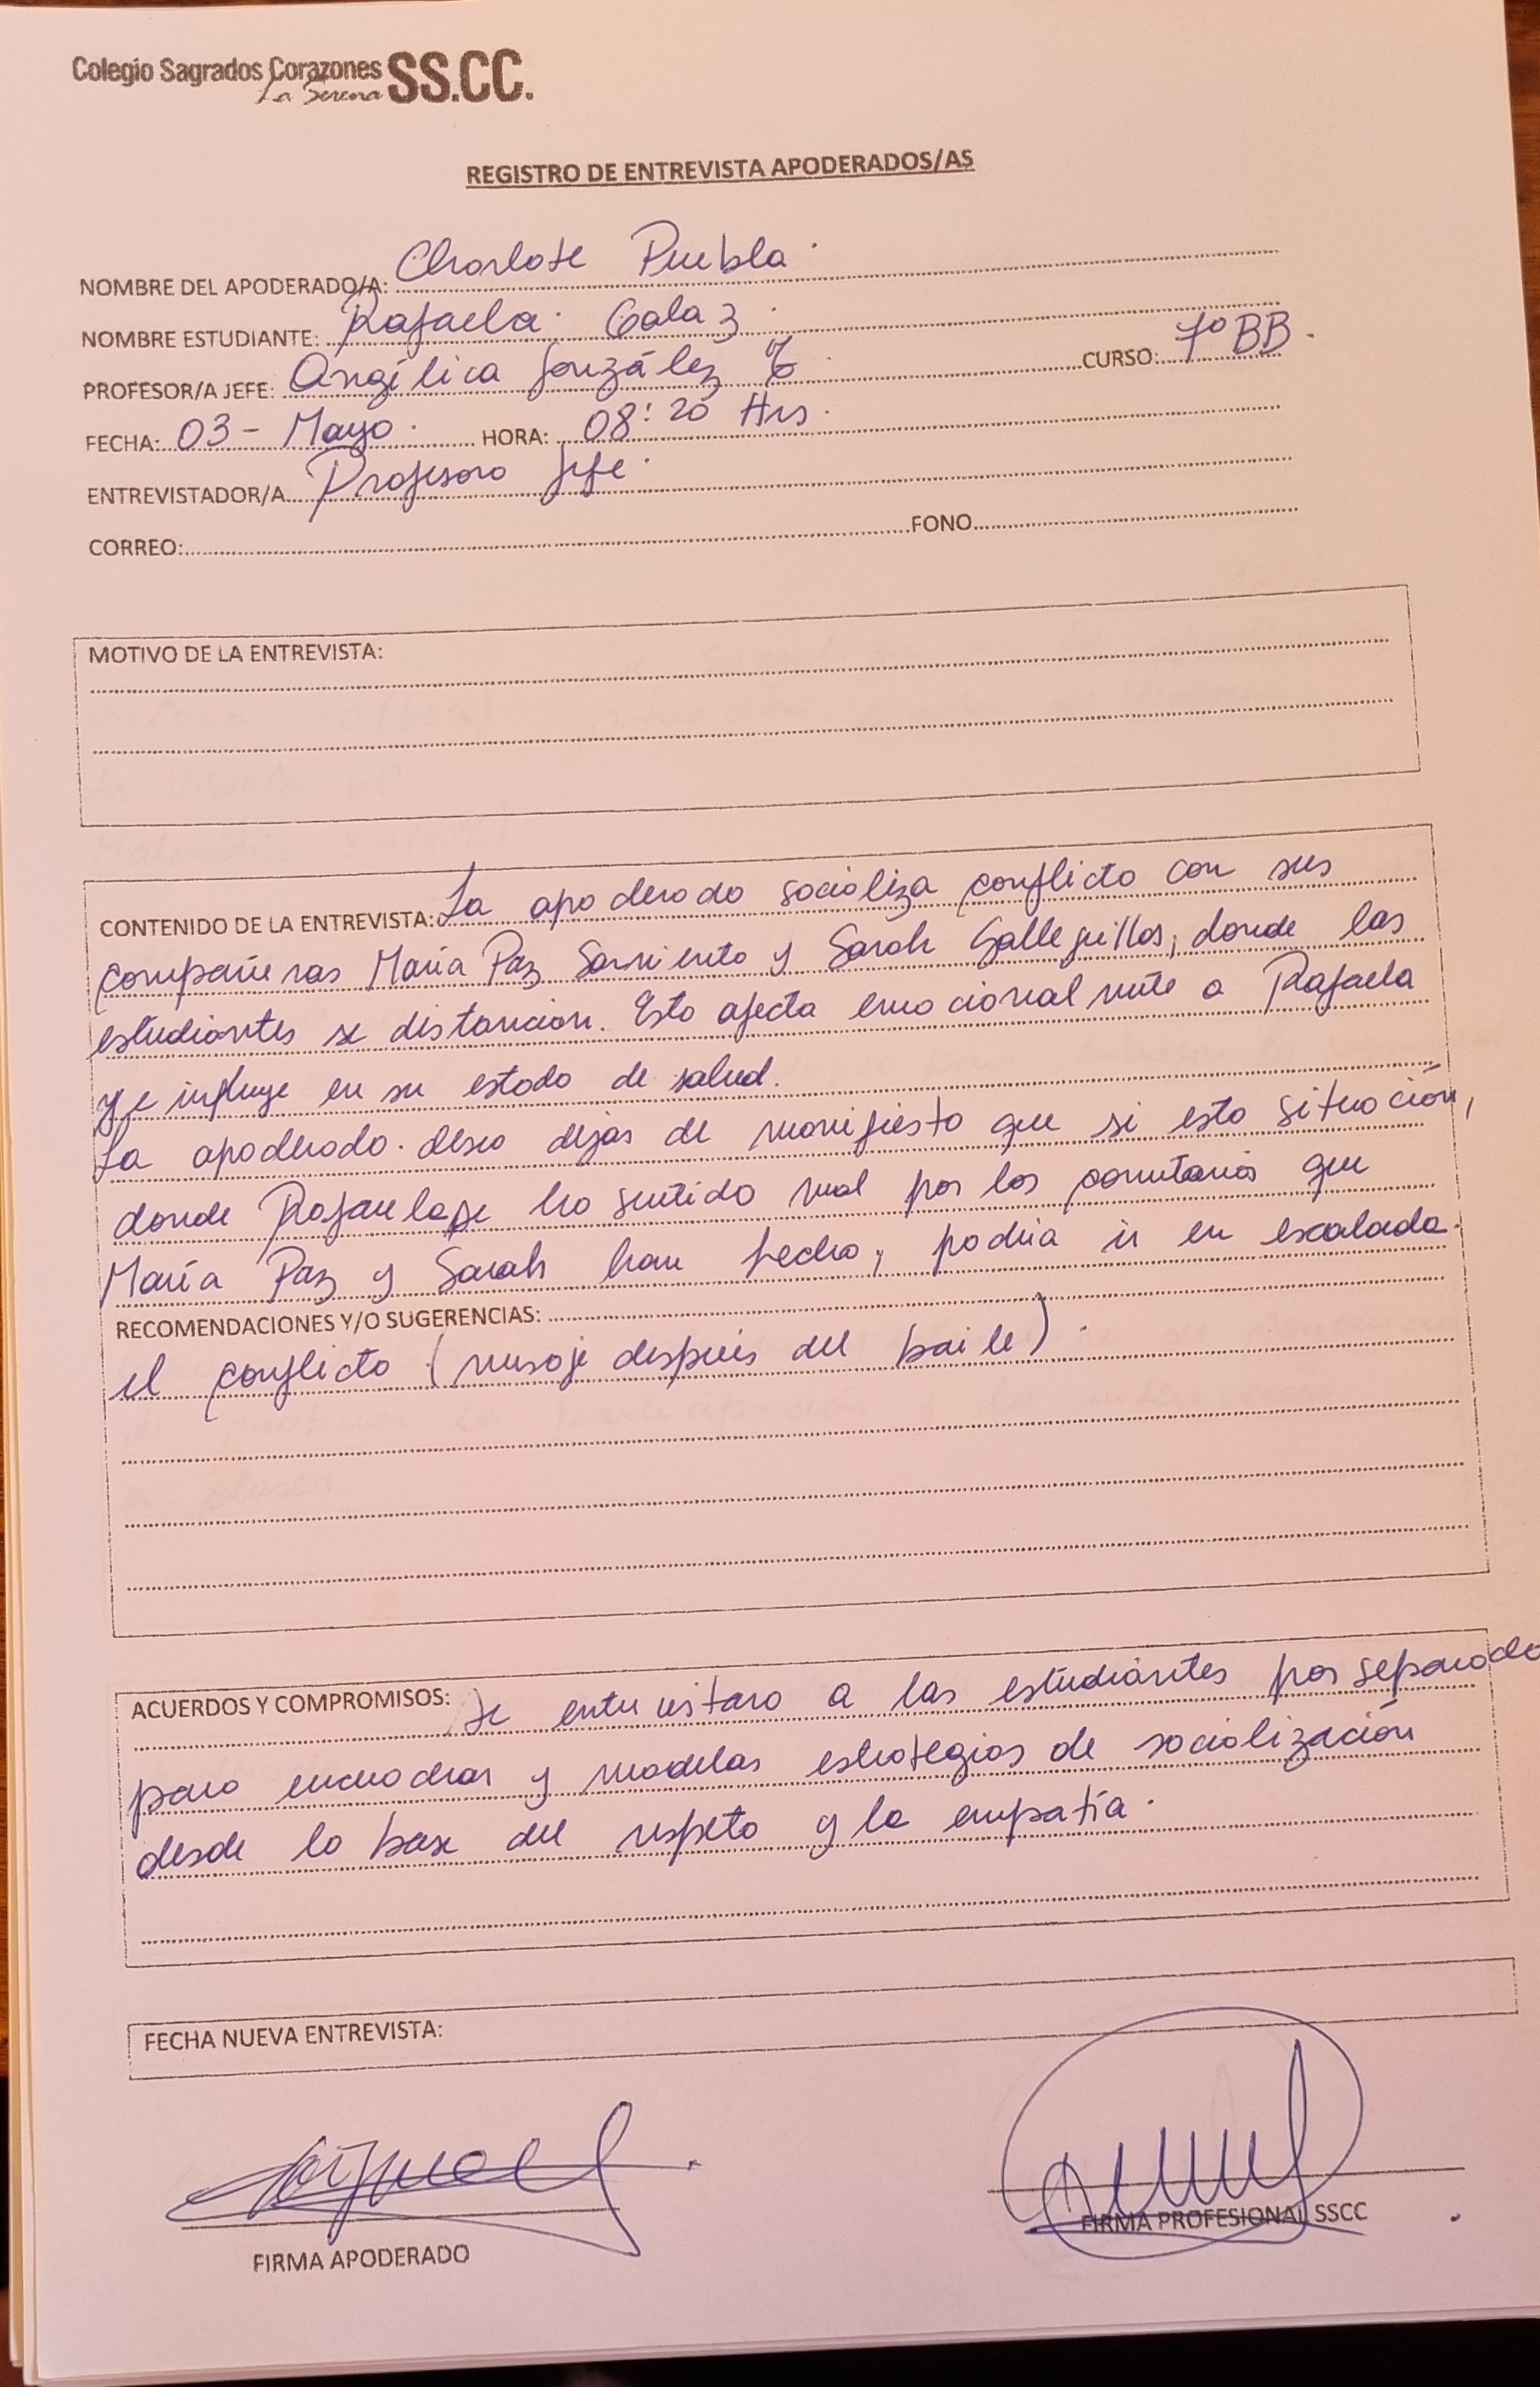 Colegio Sagrados Corazones SS.CC.
La Serena
REGISTRO DE ENTREVISTA APODERADOS/AS
NOMBRE DEL APODERADO/A: Charlote Puebla
NOMBRE ESTUDIANTE: Rafaela Galaz
PROFESOR/A JEFE: Angélica González CURSO: 7º BB.
FECHA: 03 - Mayo. HORA: 08:20 Hrs.
ENTREVISTADOR/A Profesora Jefe.
CORREO: FONO
MOTIVO DE LA ENTREVISTA:
CONTENIDO DE LA ENTREVISTA: La apoderada socializa conflicto con sus
compañeras María Paz Sarmiento y Sarah Galleguillos, donde las
estudiantes se distancian. Esto afecta emocionalmente a Rafaela
y e influye en su estado de salud.
La apoderada desea dejar de manifiesto que si esta situación,
donde Rafaela se ha sentido mal por los comentarios que
María Paz y Sarah han hecho, podría ir en escalada.
RECOMENDACIONES Y/O SUGERENCIAS:
el conflicto (mensaje después del baile).
ACUERDOS Y COMPROMISOS: Se entrevistara a las estudiantes por separado
para encuadrar y modelar estrategias de socialización
desde la base del respeto y la empatía.
FECHA NUEVA ENTREVISTA:
FIRMA APODERADO
FIRMA PROFESIONAL SSCC